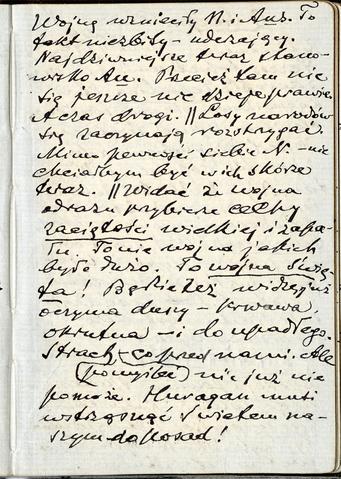 Wojnę wznieciły N. i Aus. To
fakt niezbity - uderzający.
Najdziwniejsze teraz stano-
wisko An. Przecież tam nie
się jeszcze nie dzieje prawie.
A czas drogi. || Losy narodów
się zaczynają rozstrzygać.
Mimo pewności siebie N. - nie
chciałbym być w ich skórze
teraz. || Widać że wojna
odrazu przybierze cechy
zaciętości wielkiej i zapa-
łu. To nie wojna jakich
było dużo. To wojna świę-
ta! Będzie też widzę już
oczyma duszy - krwawa,
okrutna - i do upadłego.
Strach, co przed nami. Ale
(pomyśleć) nic już nie
pomoże. Huragan musi
wstrząsnąć światem na-
szym do posad!